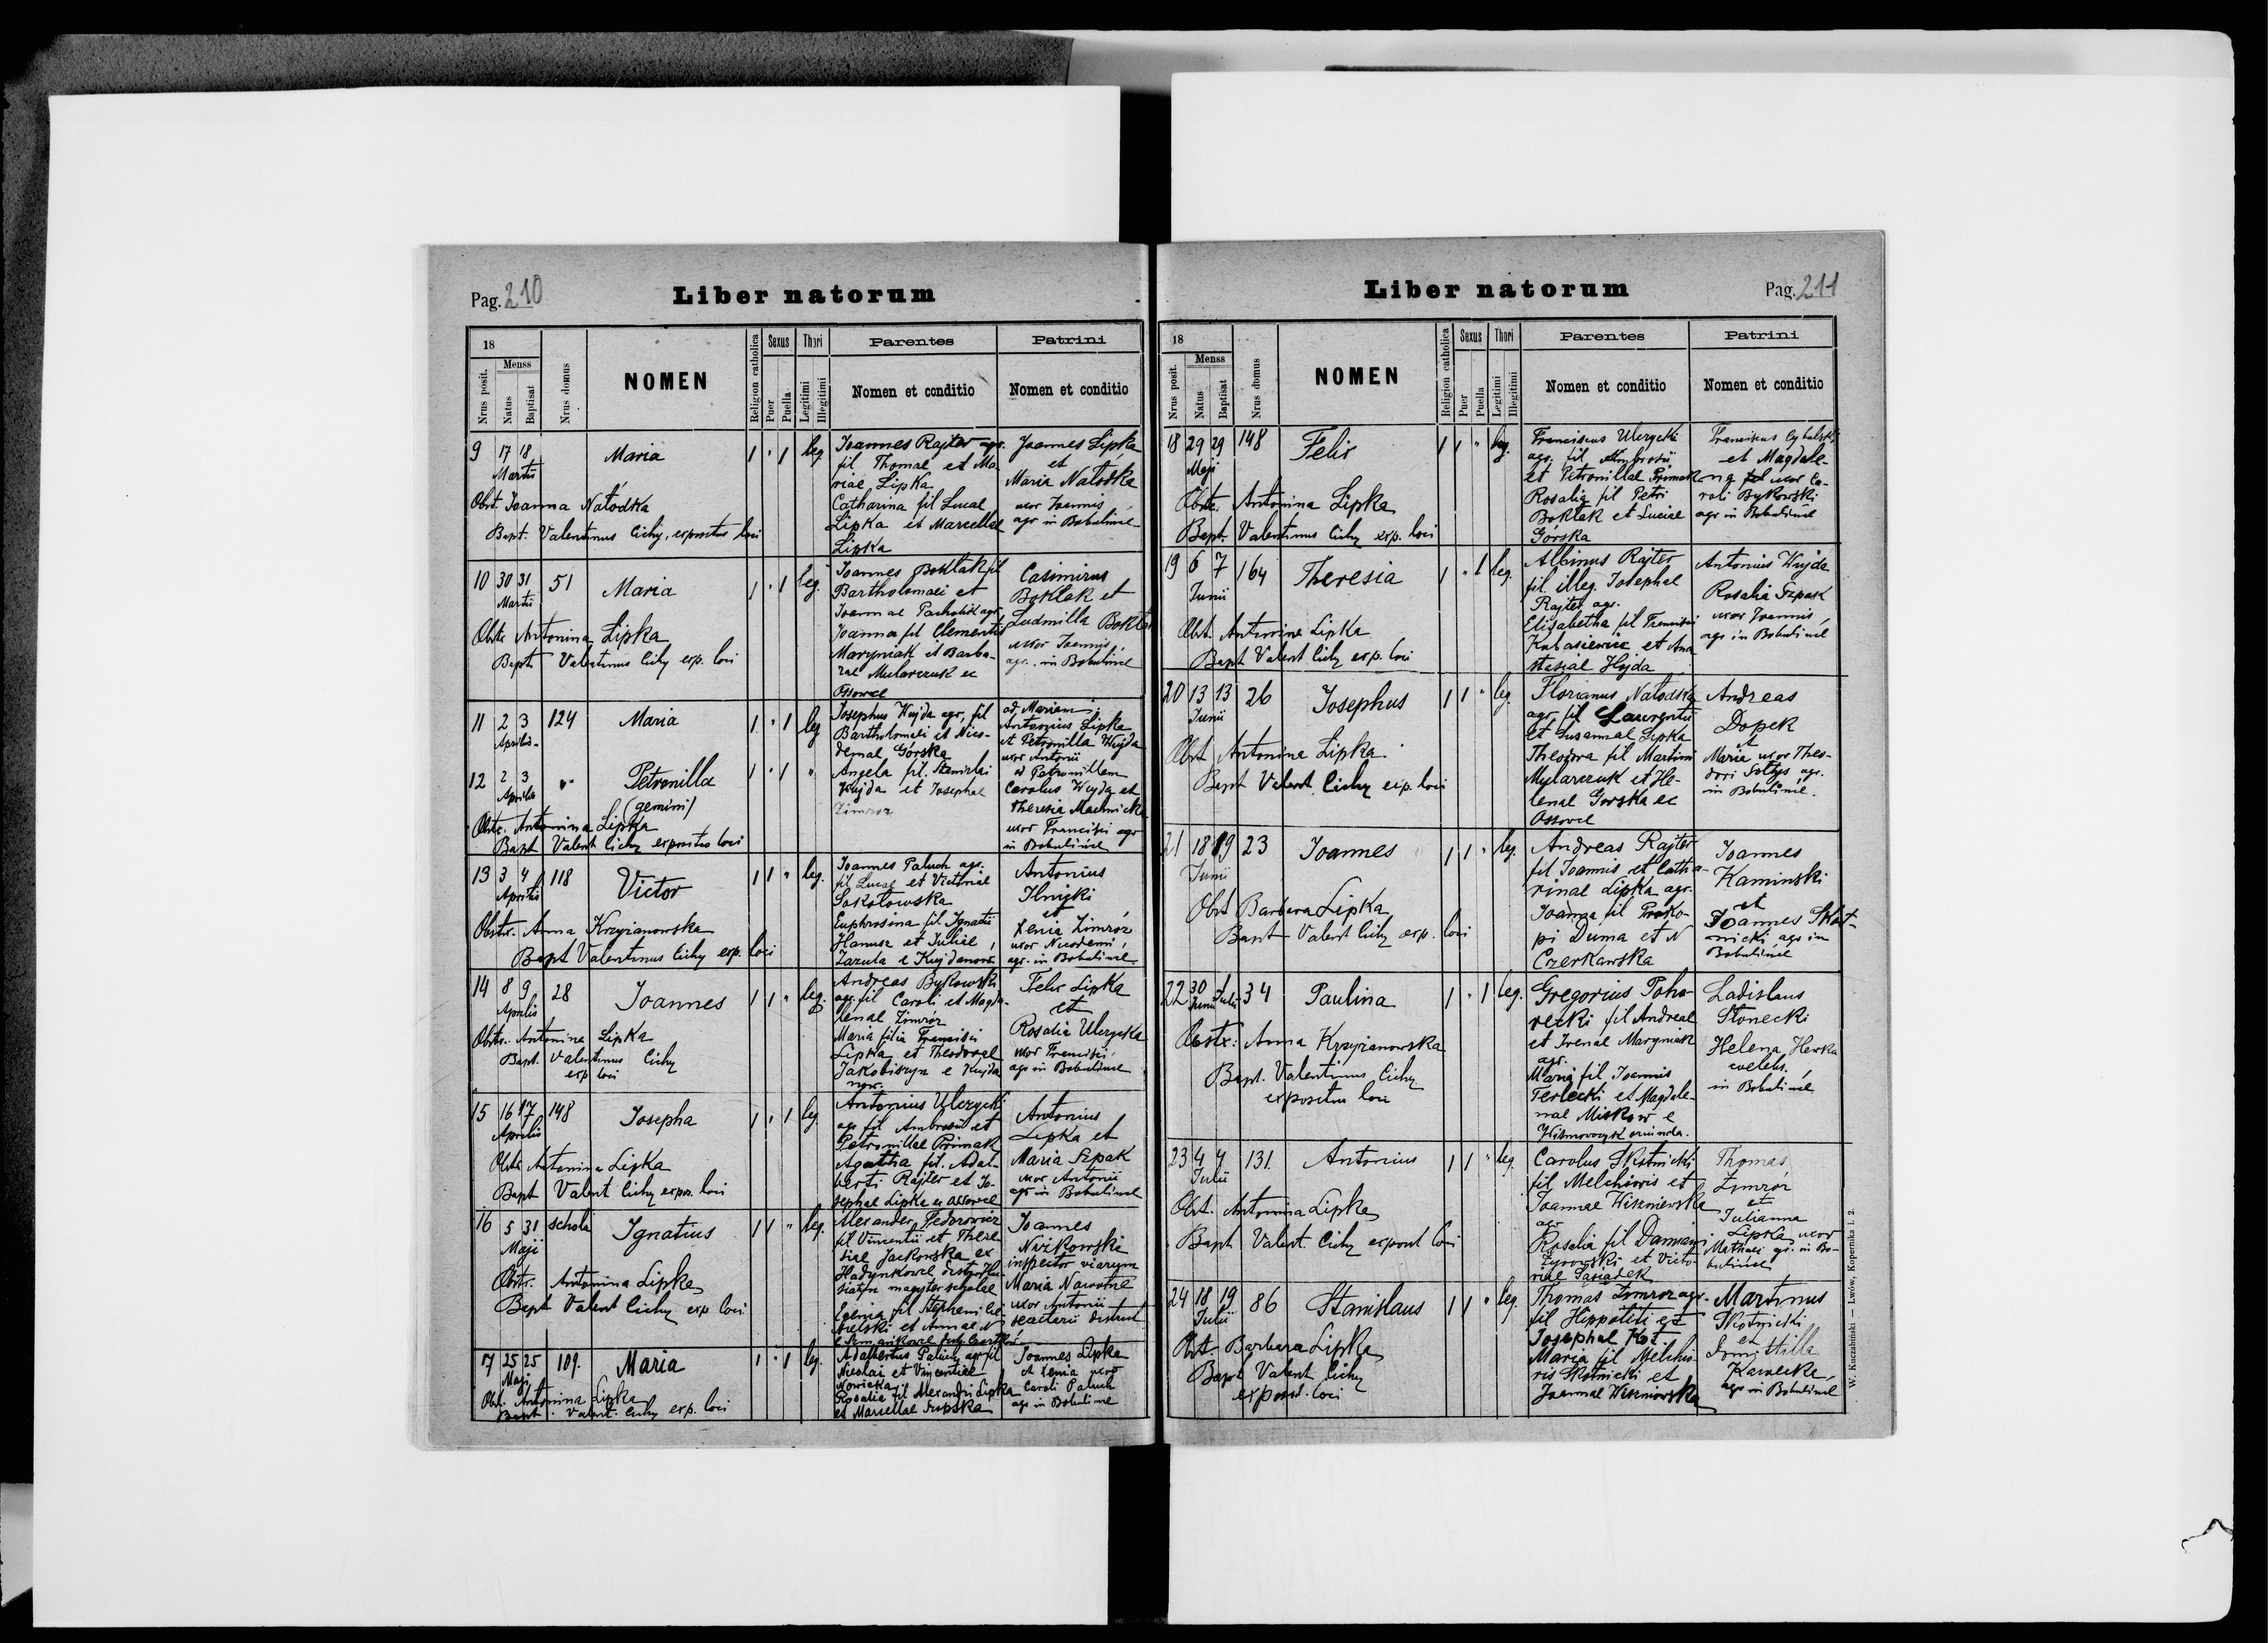 Pag. 210
Liber natorum
18
Menss
Nrus posit.
Natus
Baptisat
Nrus domus
NOMEN
Religion catholica
Sexus
Puer
Puella
Thori
Legitimi
Illegitimi
Parentes
Nomen et conditio
Patrini
Nomen et conditio
9 17 18 Maria 1 " 1 leg.
Martii
Obst. Joanna Natodka
Bapt. Valentinus Cichy, expositus loci
Joannes Rajter agr.
fil Thomae et Ma-
riae Lipka
Catharina fil Lucae
Lipka et Marcellae
Lipka
Joannes Lipka
et
Maria Natodka
uxor Joannis
agr in Bobulince
10 30 31 51 Maria 1 " 1 leg.
Martii
Obstr Antonina Lipka
Bapt Valentinus Cichy exp. loci
Joannes Boklak fil
Bartholomaei et
Joannae agr.
Joanna fil Clementis
Maryniak et Barba-
rae Mularczuk ex
Ossowce
Casimirus
Boklak et
Ludmilla Boklak
uxor Joannis,
agr. in Bobulince
11 2 3 124 Maria 1 " 1 leg
Aprilis
12 2 3 " Petronilla 1 " 1 "
Aprilis
(gemini)
Obstr. Antonina Lipka
Bapt Valent Cichy expositus loci
Josephus Wujda agr, fil
Bartholomaei et Nico-
demae Górska
Angela fil. Stanislai
Kujda et Josephae
Zimroz
ad Mariam:
Antonius Lipka
et Petronilla Wujda
uxor Antonii
ad Petronillam
Carolus Wujda et
Theresia
uxor Francisci agr
in Bobulince
13 3 4 118 Victor 1 1 " leg.
Aprilis
Obstr. Anna Krzyzanowska
Bapt Valentinus Cichy exp. loci
Joannes Paluch agr.
fil Lucae et Victoriae
Sokołowska
Euphrosina fil. Ignatii
Hanusz et Juliae,
Zazula e Kujdanow
Antonius
Ilnicki
et
Xenia Zimróz
uxor Nicodemi,
agr. in Bobulince
14 8 9 28 Joannes 1 1 " leg.
Aprilis
Obstr. Antonina Lipka
Bapt. Valentinus Cichy
exp loci
Andreas Bykowski
agr. fil Caroli et Magda-
lenae Zimróz
Maria filia Francisci
Lipka et Theodorae
Jakobiszyn e Kujda
now.
Felix Lipka
et
Rosalia Ulczycka
uxor Francisci,
agr in Bobulince
15 16 17 148 Josepha 1 " 1 leg.
Aprilis
Obstr Antonina Lipka
Bapt Valent Cichy expos. loci
Antonius Ulczycki
agr fil Ambrosii et
Petronillae Primak
Agatha fil. Adal-
berti Rajter et Jo-
sephae Lipka ex Ossowce
Antonius
Lipka et
Maria Szpak
uxor Antonii
agr in Bobulince
16 5 31 schola Ignatius 1 1 " leg.
Maji
Obstr. Antonina Lipka
Bapt Valent Cichy exp. loci
Alexander Fedorowicz
fil Vincentii et There-
siae Jackowska ex
Hadynkowce distr. Hu-
siatyn magister scholae
fil Stephani
et Annae N
Joannes
Niżkowski
inspector viarum
Maria
uxor Antonii
17 25 25 109. Maria 1 " 1 leg.
Maji
Obst. Antonina Lipka
Bapt. Valent. Cichy exp. loci
Adalbertus Paluch agr fil
Nicolai et Vincentiae
Nowicka
Rosalia fil Alexandri Lipka
et Marcellae
Joannes Lipka
et Xenia uxor
Caroli Paluch
agr in Bobulince
Liber natorum
Pag. 211
18
Menss
Nrus posit.
Natus
Baptisat
Nrus domus
NOMEN
Religion catholica
Sexus
Puer
Puella
Thori
Legitimi
Illegitimi
Parentes
Nomen et conditio
Patrini
Nomen et conditio
18 29 29 148 Felix 1 1 " leg.
Maji
Obstr. Antonina Lipka
Bapt. Valentinus Cichy exp. loci
Franciscus Ulczycki
agr. fil Ambrosii
et Petronillae Primak
Rosalia fil Petri
Boklak et Luciae
Gorska
Franciscus Cybulski
et Magdale-
na uxor Ca-
roli Bykowski
agr in Bobulince
19 6 7 164 Theresia 1 " 1 leg.
Junii
Obst. Antonina Lipka
Bapt Valent Cichy exp. loci
Albinus Rajter
fil illeg. Josephae
Rajter agr.
Elisabetha fil Francisci
Kubasiewicz et Ana
stasiae Hojda
Antonius Wujda
Rosalia Szpak
uxor Joannis,
agr in Bobulince
20 13 13 26 Josephus 1 1 " leg.
Junii
Obst Antonina Lipka
Bapt Valent. Cichy exp. loci
Florianus Natodka
agr, fil Laurentii
et Susannae Lipka
Theodora fil Martini
Mularczuk et He-
lenae Gorska ex
Ossowce
Andreas
Dopek
et
Maria uxor Theo-
dori Sołtys agr.
in Bobulince.
21 18 19 23 Joannes 1 1 " leg.
Junii
Obst Barbara Lipka
Bapt Valent Cichy exp. loci
Andreas Rajter
fil Joannis et Catha-
rinae Lipka agr.
Joanna fil Proko-
pi Duma et N
Czerkawska
Joannes
Kaminski
et
Joannes Skot-
nicki, agr in
Bobulince
22 30 1 34 Paulina 1 " 1 leg.
Junii Julii
Obstr: Anna Krzyzanowska
Bapt. Valentinus Cichy
expositus loci
Gregorius Poho-
recki fil Andreae
et Irenae Maryniak
agr.
Maria fil Joannis
Terlecki et Magdale-
nae Miskow e
Wisniowczyk oriunda.
Ladislaus
Słonecki
Helena Hewka
coelebs.,
in Bobulince
23 4 4 131. Antonius 1 1 " leg.
Julii
Obst. Antonina Lipka
Bapt Valent. Cichy exposit loci
Carolus Skotnicki
fil Melchioris et
Joannae Wisniewska
agr
Rosalia fil Damiani
Zyrowski et Victo-
riae Sąsiadek
Thomas
Zimróz
et
Julianna
Lipka uxor
Mathaei agr. in Bo-
bulince
24 18 19 86 Stanislaus 1 1 " leg.
Julii
Obst. Barbara Lipka
Bapt Valent Cichy
exposit. loci
Thomas Zimroz agr.
fil Hippoliti et
Josephae Kot.
Maria fil Melchio
ris Skotnicki et
Joannae Wisniowska
Martinus
Skotnicki
et
Domitilla
Kawecka,
agr in Bobulince
W. Kuczabiński — Lwów, Kopernika l. 2.